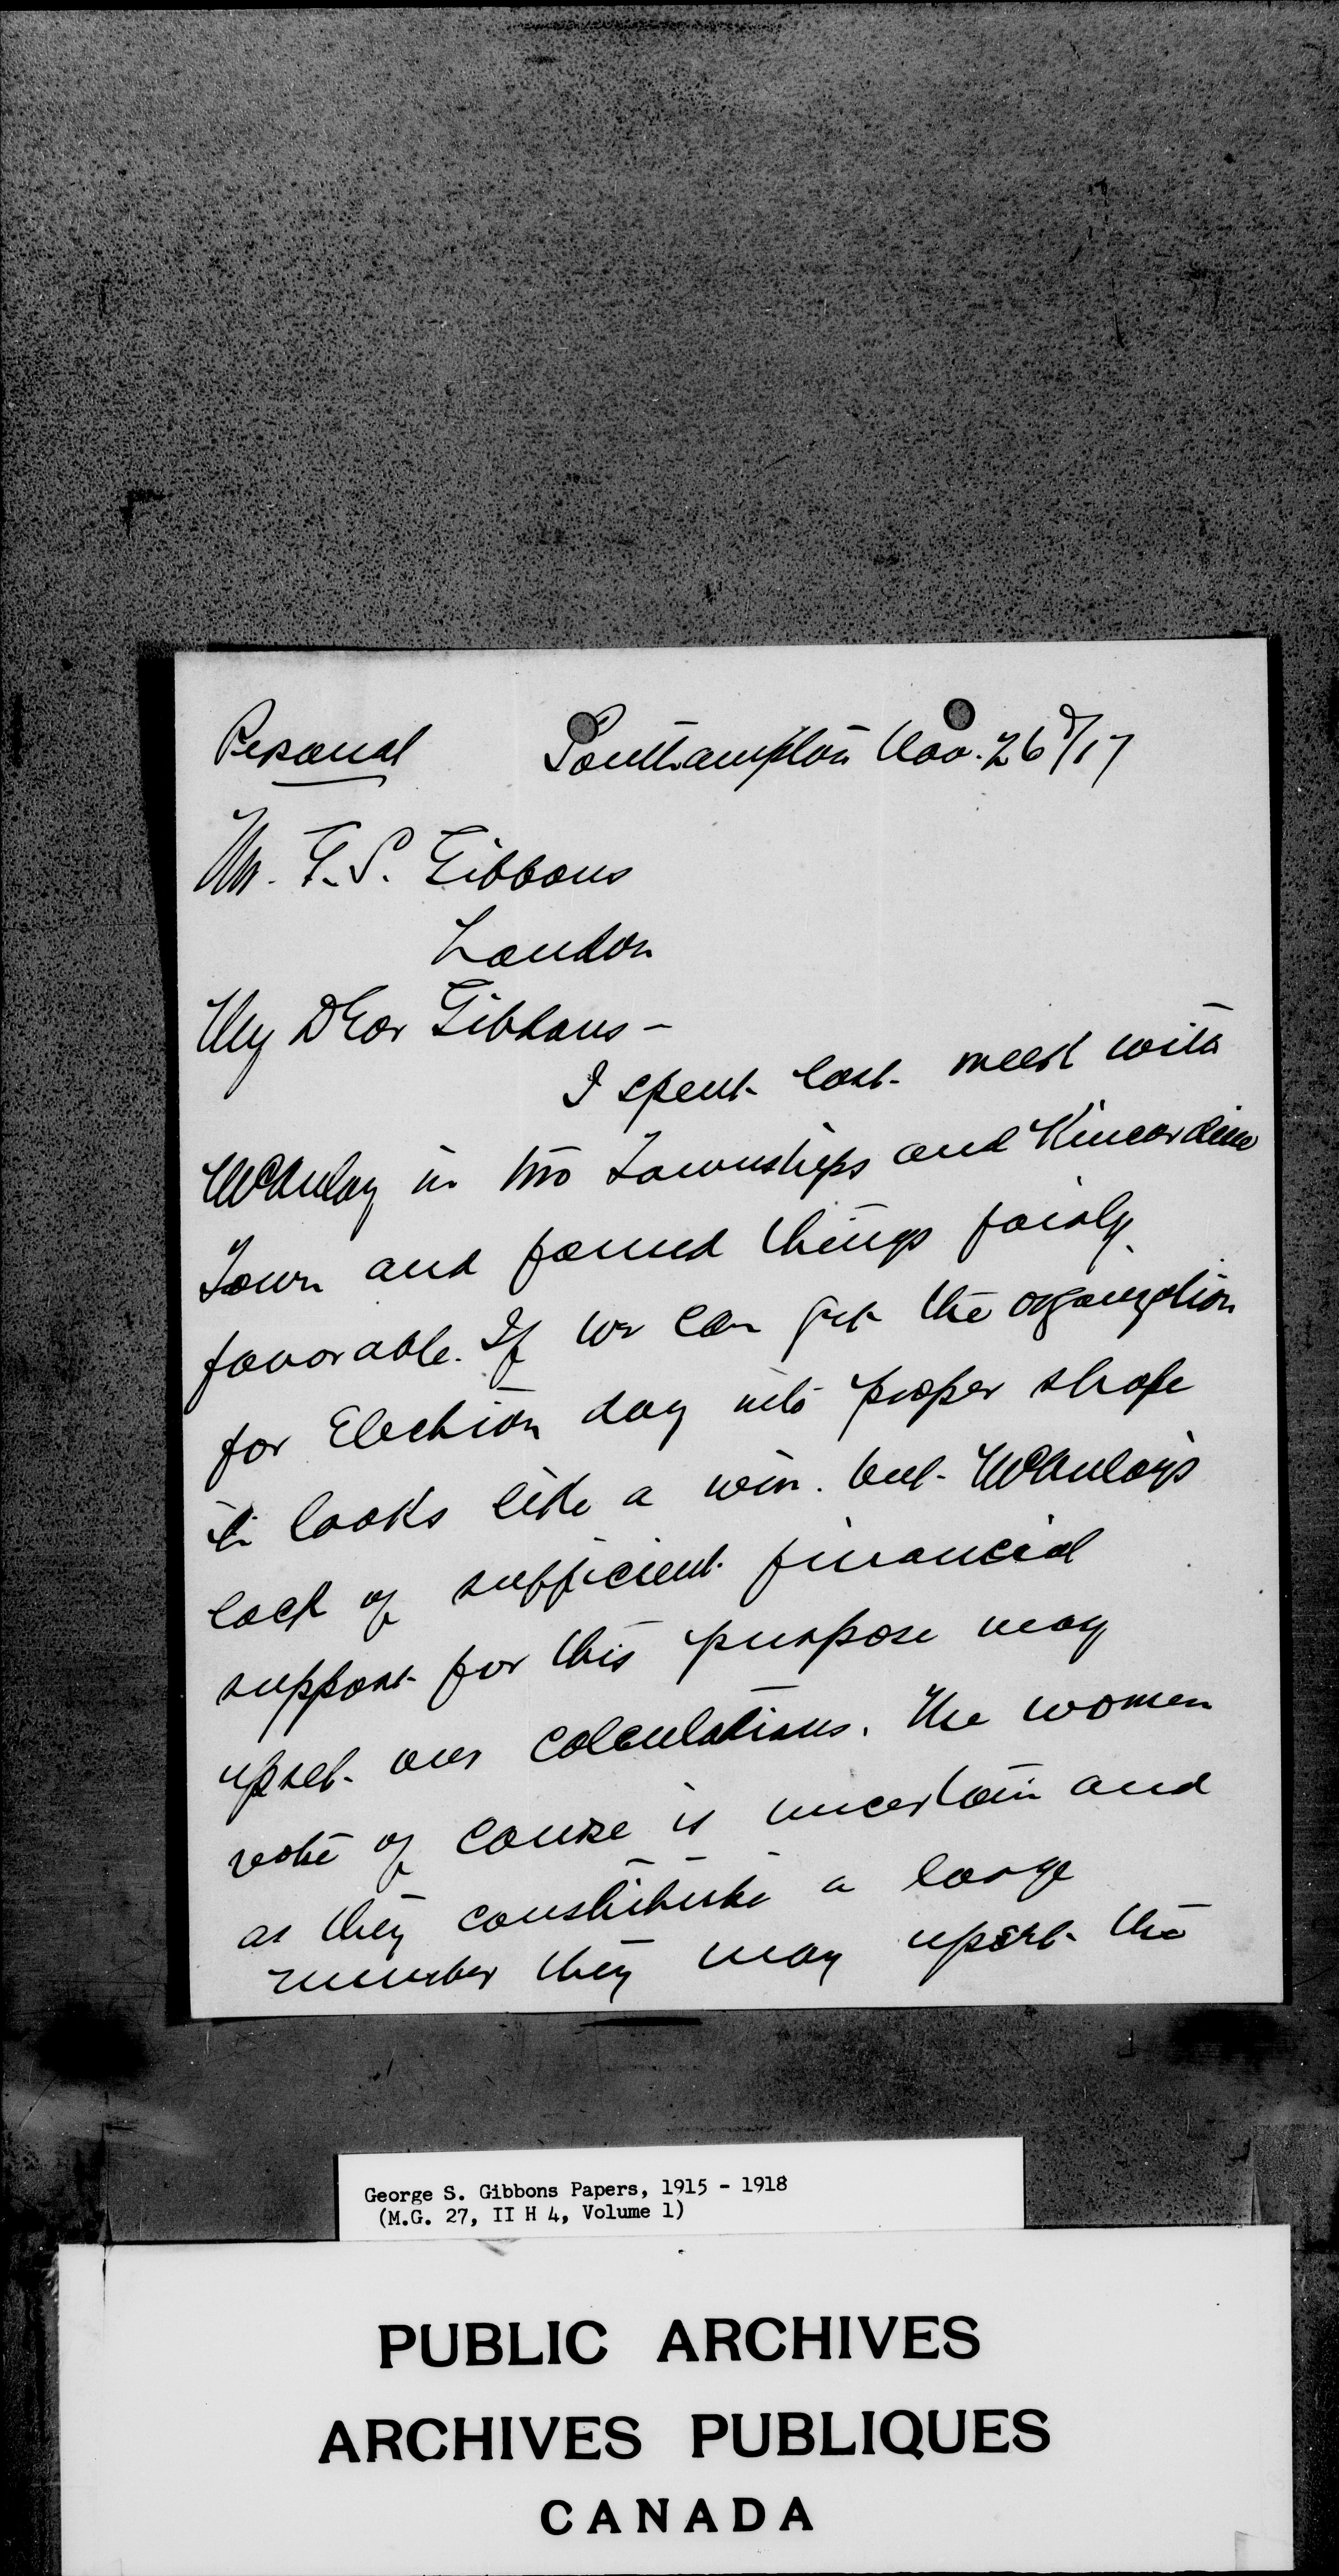 Personal Southampton Nov. 26th/17
Mr. G. S. Gibbons
London
My Dear Gibbons -
I spent last week with
McAulay in two Townships and Kincardine
Town and found things fairly
favorable. If we can get the organization
for Election day into proper shape
it looks like a win. but McAulays
lack of sufficient financial
support for this purpose may
upset our calculations. The women
vote of course is uncertain and
as they constitute a large
number they may upset the
George S. Gibbons Papers, 1915 - 1918
(M.G. 27, II H 4, Volume 1)
PUBLIC ARCHIVES
ARCHIVES PUBLIQUES
CANADA